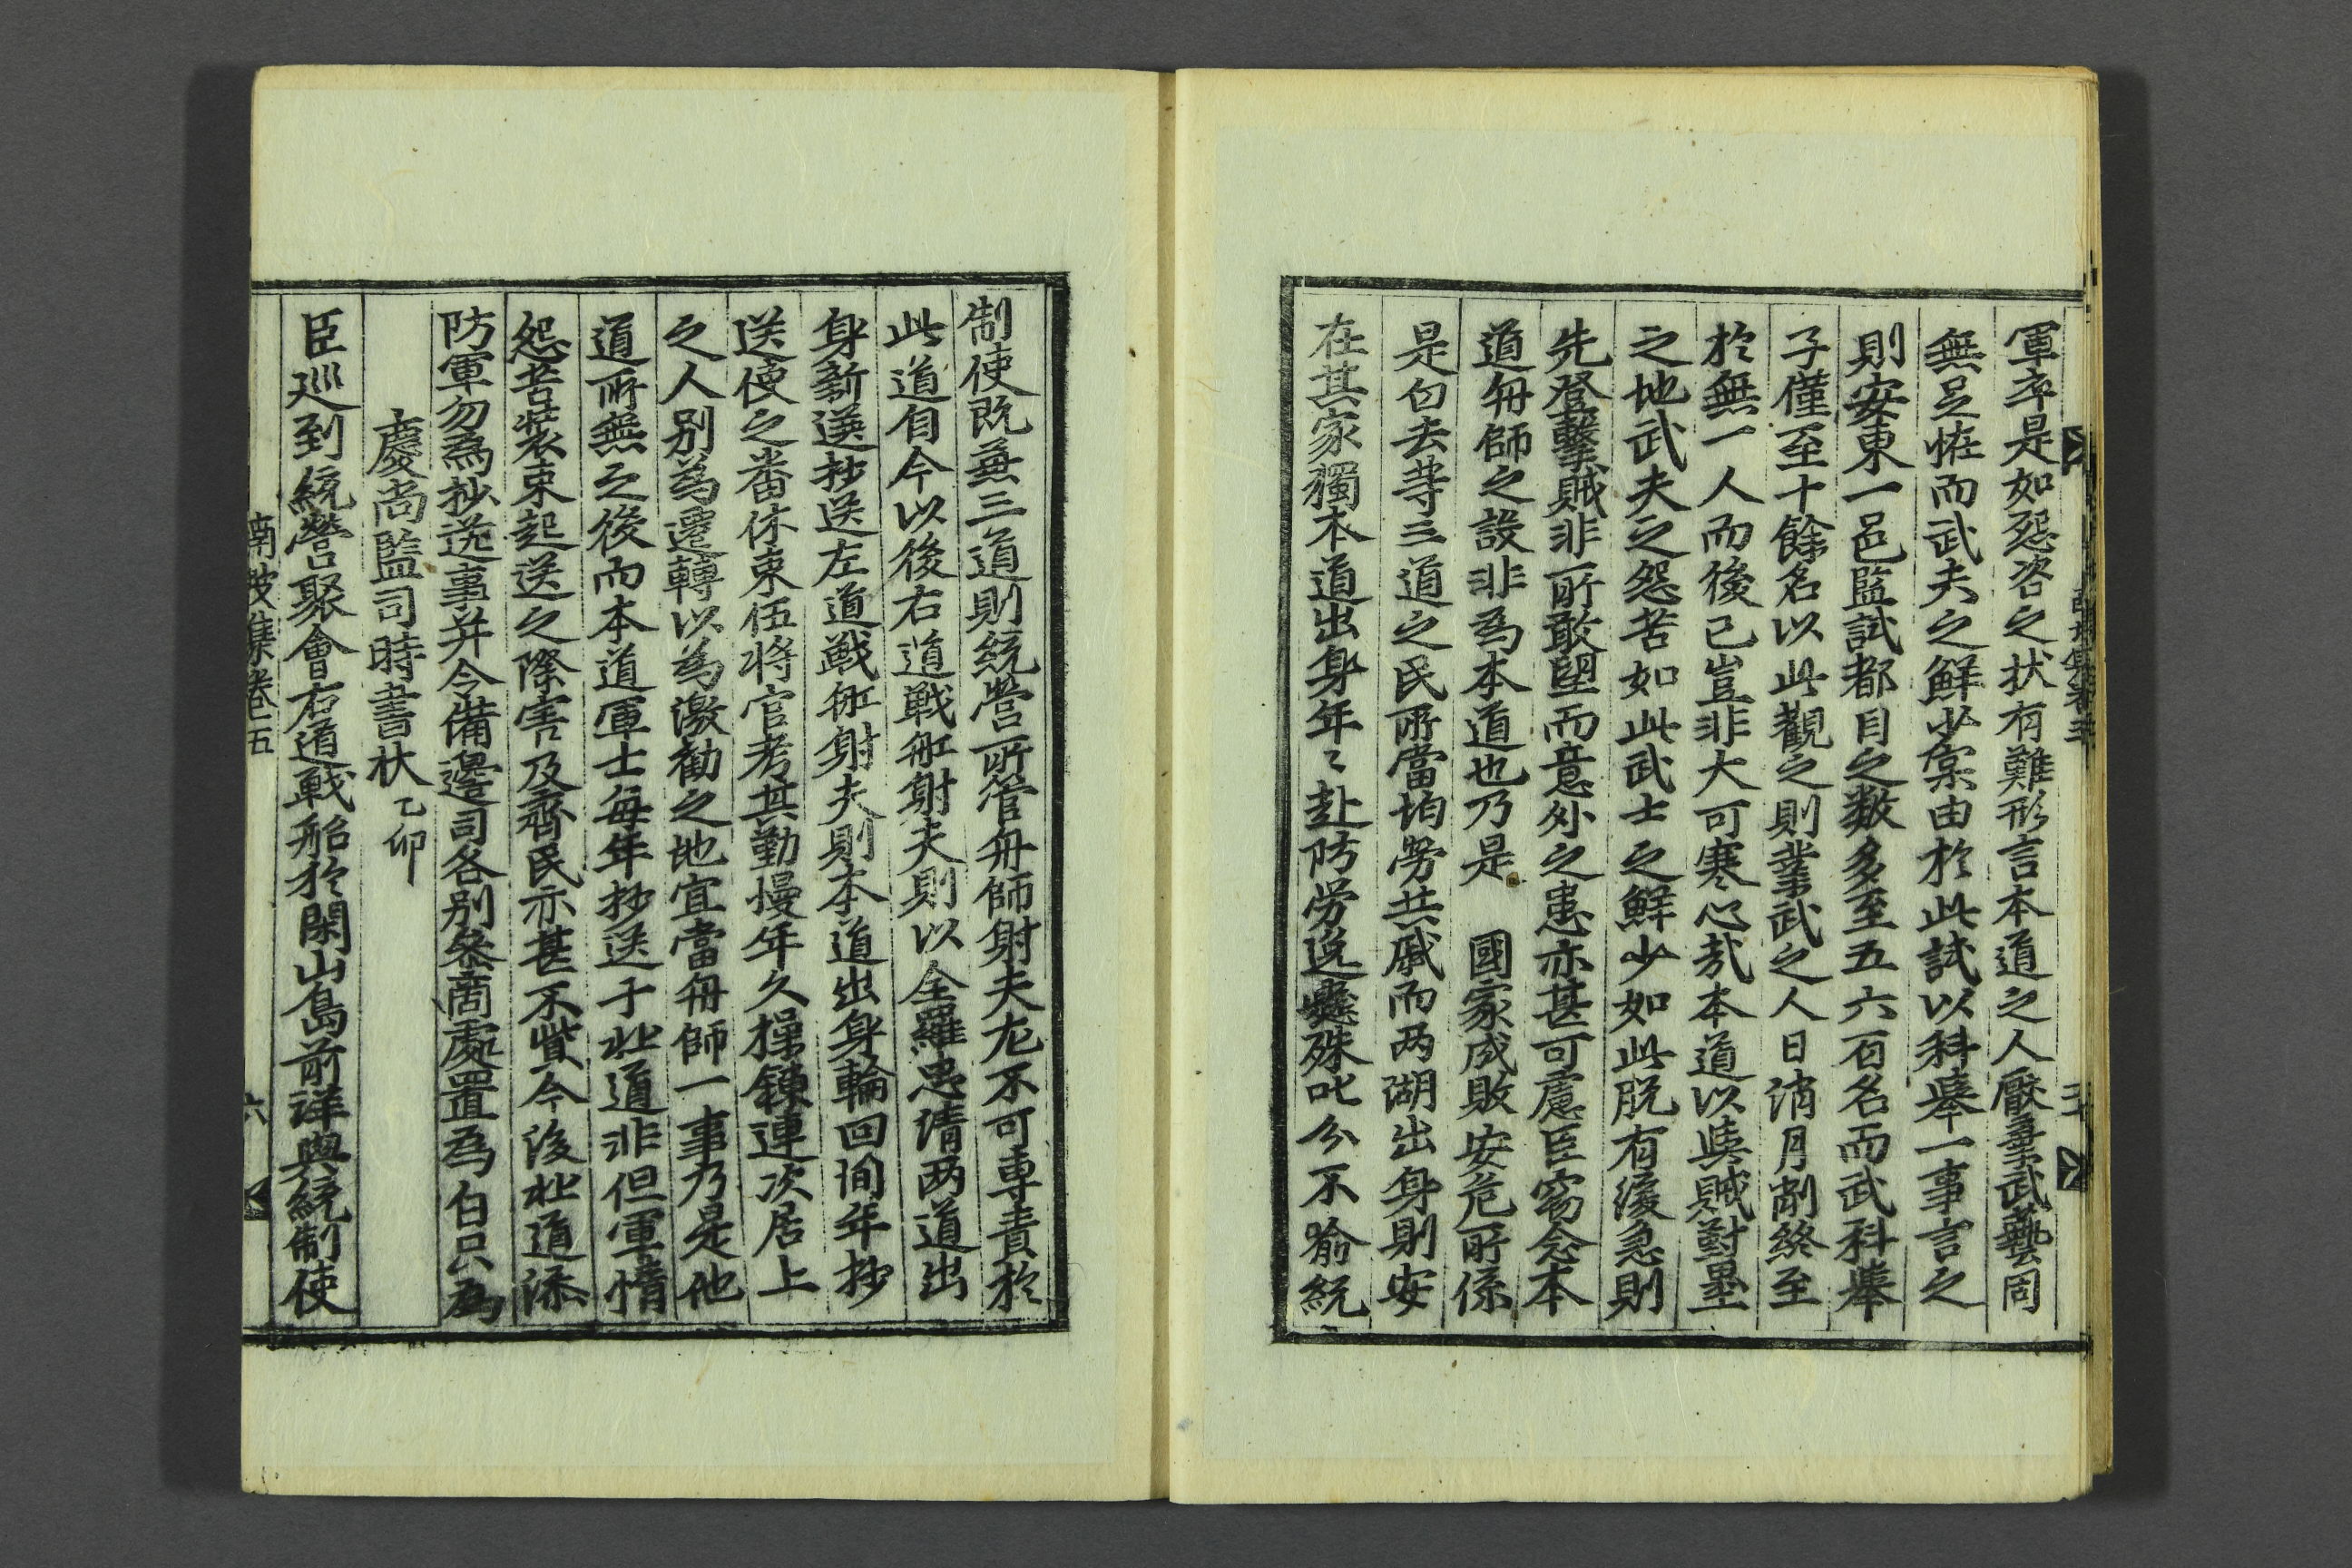 軍卒是如怨咨之状有難形言本道之人厭棄武藝固
無足恠而武夫之鮮少寀由於此試以科擧一事言之
則安東一邑監試都目之数多至五六百名而武科擧
子僅至十餘名以此觀之則業武之人日消月削終至
於無一人而後已豈非大可寒心㢤本道以與賊對壘
之地武夫之怨苦如此武士之鮮少如此脱有緩急則
先登擊賊非所敢望而意外之患亦甚可慮臣窃念本
道舟師之設非為本道也乃是 國家成敗安危所係
是白去等三道之民所當均勞共戚而两湖出身則安
在其家獨本道出身年〻赴防勞逸懸殊叱分不喩統
制使既兼三道則統營所管舟師射夫尤不可専責於
此道自今以後右道戦舡射夫則以全羅忠清两道出
身新選抄送左道戦舡射夫則本道出身輪回間年抄
送使之番休束伍将官考其勤慢年久操鍊連次居上
之人别為遷轉以為激勸之地宜當舟師一事乃是他
道所無之役而本道軍士每年抄送于北道非但軍情
怨苦装束起送之際害及齊民亦甚不貲今後北道添
防軍勿為抄送事并令備邊司各别叅商處置為白只為
慶尚監司時書状 乙卯
臣巡到統營聚會右道戦船於閑山島前洋與統制使
南坡集卷五
六